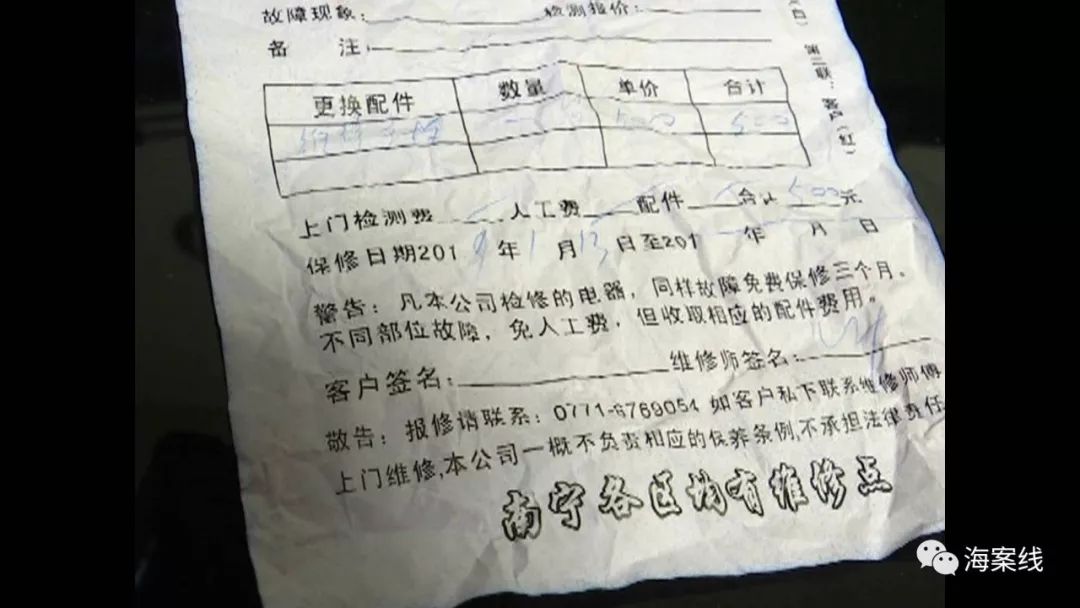 故障现象：检测报价：
备 注：
更换配件 数量 单价 合计
500 500
上门检测费 人工费 配件 合计 500 元
保修日期2019年1月13日至201 年 月 日
警告：凡本公司检修的电器，同样故障免费保修三个月。
不同部位故障，免人工费，但收取相应的配件费用。
客户签名： 维修师签名：
敬告：报修请联系：0771-6769054 如客户私下联系维修师傅
上门维修,本公司一概不负责相应的保养条例,不承担法律责任
南宁各区均有维修点
（白） 第二联：客户（红）
海案线